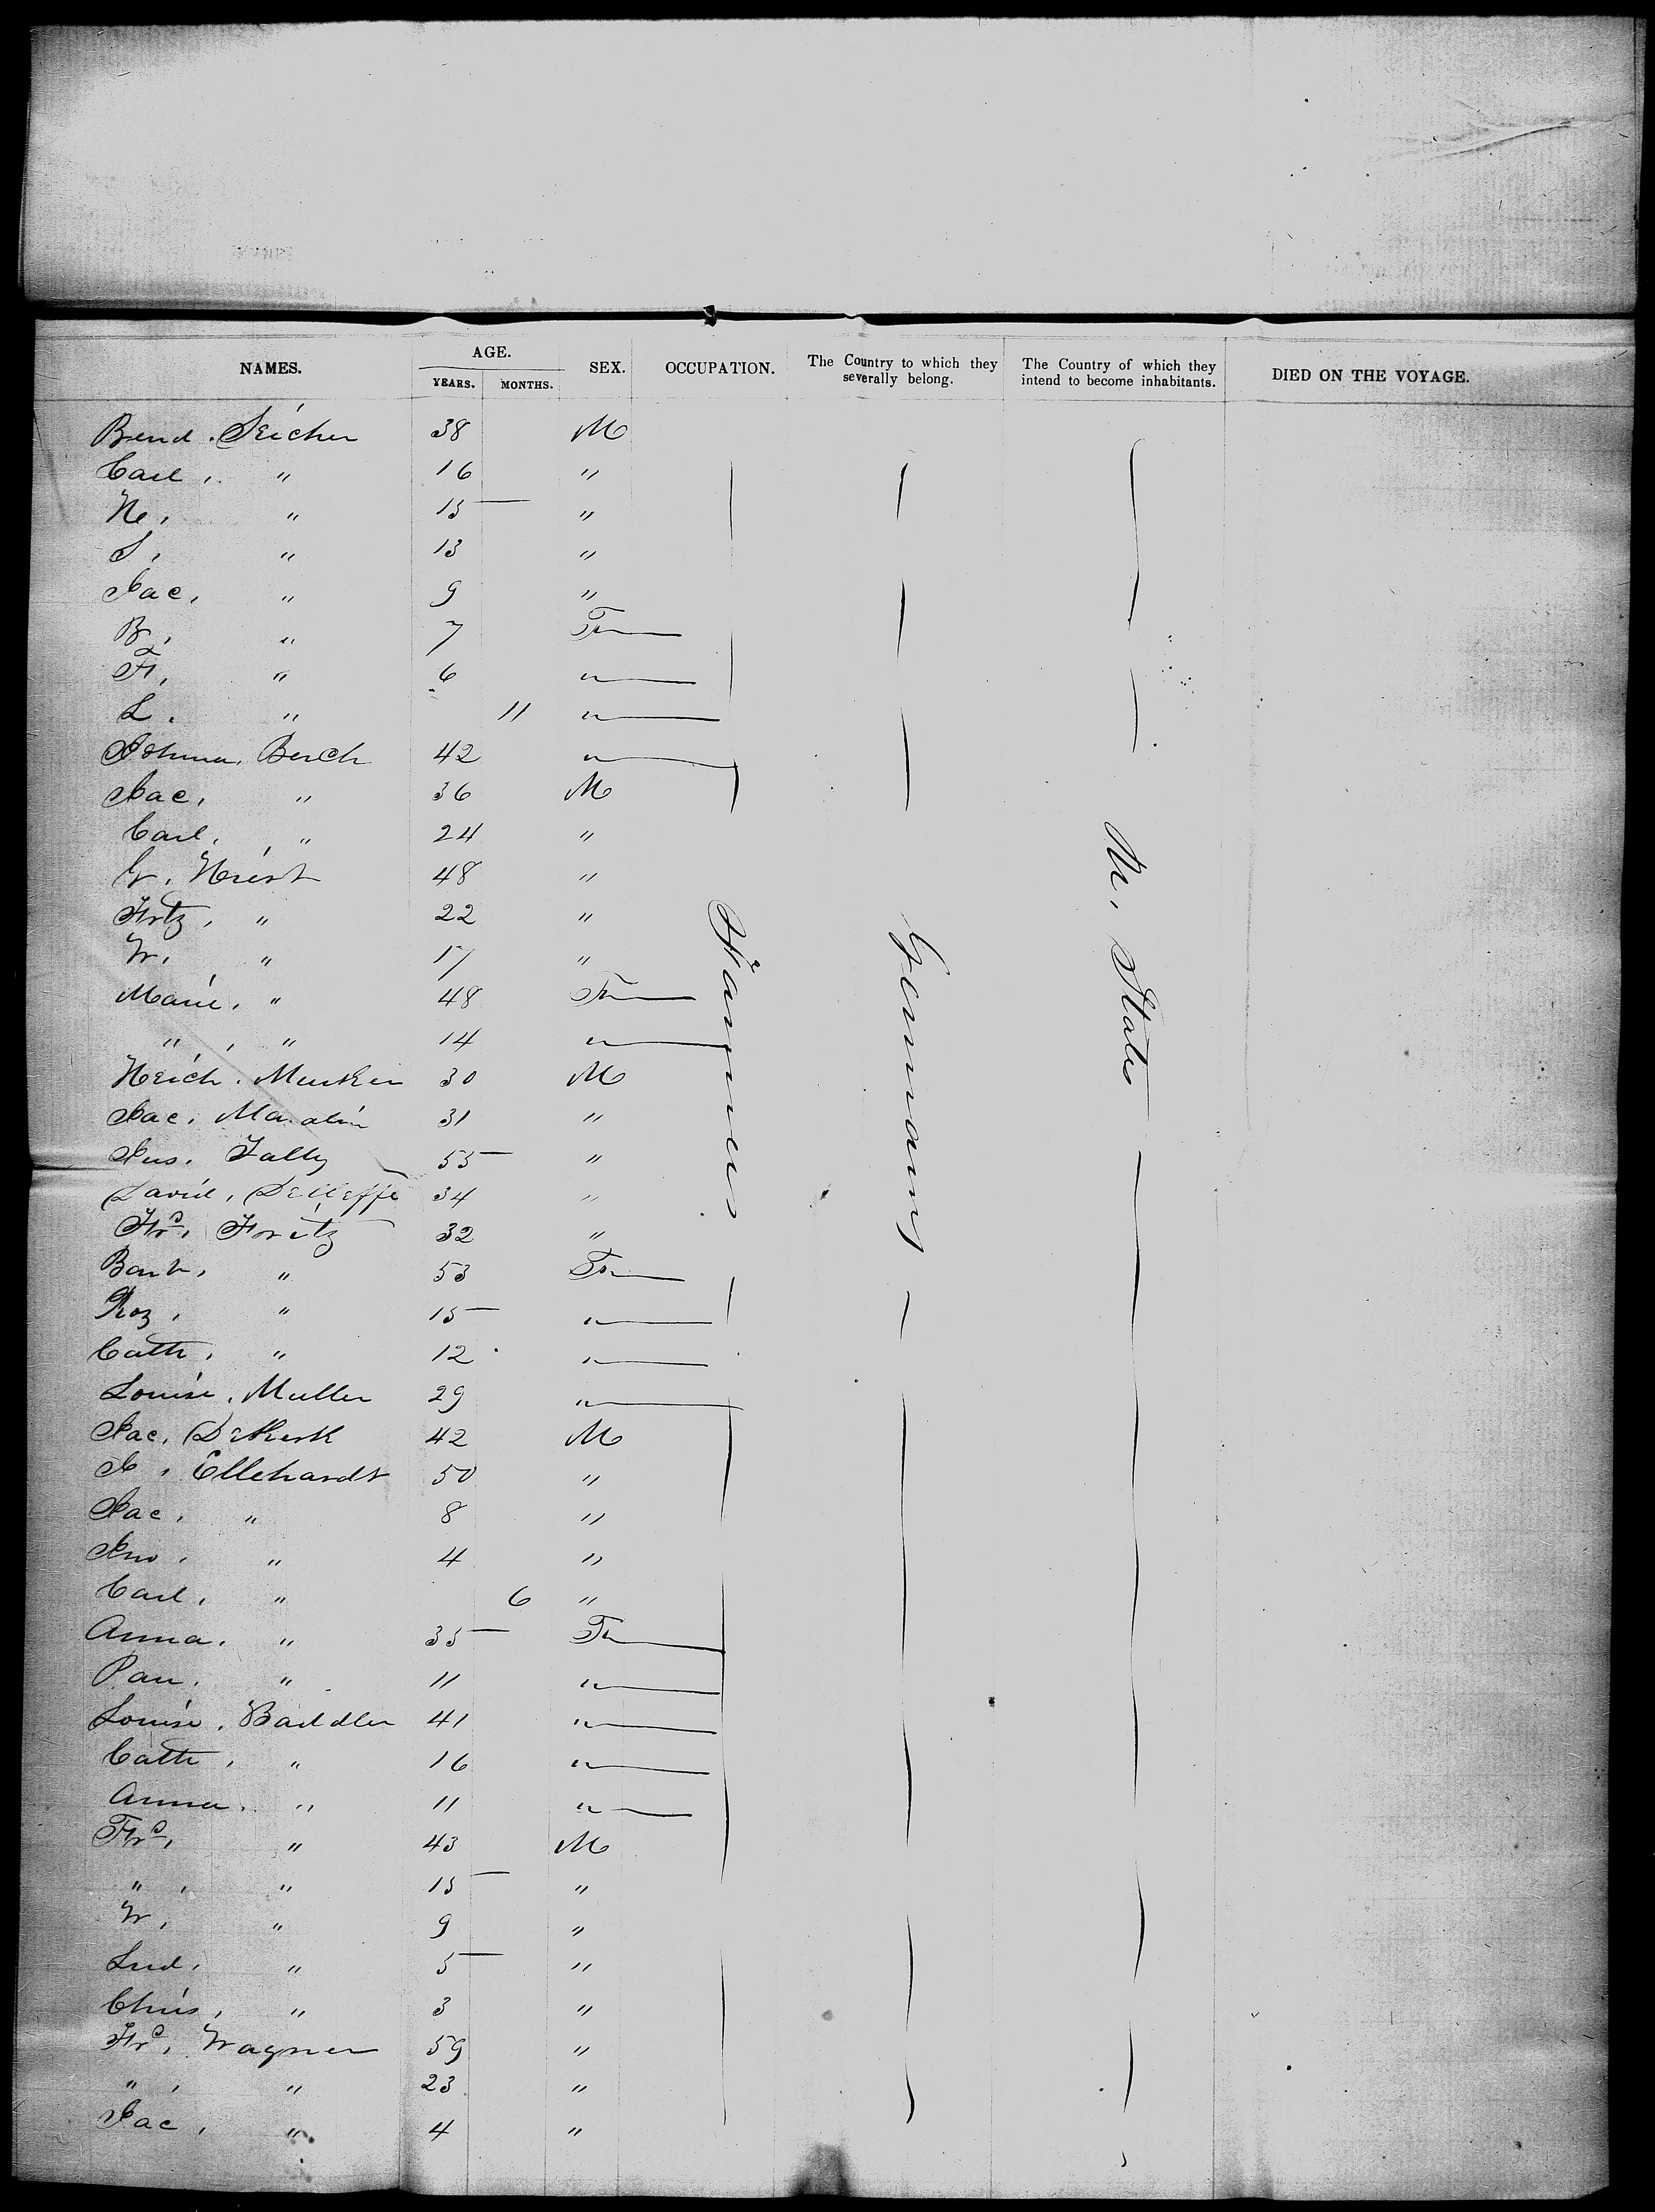 NAMES. AGE. SEX. OCCUPATION. The Country to which they severally belong. The Country of which they intend to become inhabitants. DIED ON THE VOYAGE.
YEARS. MONTHS.
Bend. Seicher 38 M
Carl, " 16 "
He, " 15 "
S, " 13 "
Jac, " 9 "
B, " 7 Fm
F, " 6 "
L. " 11 "
Johnna, Berch 42 "
Jac, " 36 M
Carl, " 24 "
G. Heirst 48 "
Frtz, " 22 "
W. " 17 "
Marie, " 48 Fm
" , " 14 "
Heich. Musken 30 M
Jac, 31 "
Jus. Jally 55 "
David, 34 "
Frd, Fritz 32 "
Barb, " 53 Fm
Roz, " 15 "
Cath, " 12 "
Louise, Muller 29 "
Jac, 42 M
J, Ellehardt 50 "
Jac, " 8 "
Jno, " 4 "
Carl, " 6 "
Anna, " 35 Fm
Pau, " 11 "
Louise, Baildler 41 "
Cath, " 16 "
Anna, " 11 "
Frd, " 43 M
" , " 15 "
W, " 9 "
Lud, " 5 "
Chris, " 3 "
Frd, Wagner 59 "
" , " 23 "
Jac, " 4 "
Farmers
Germany
Un. States